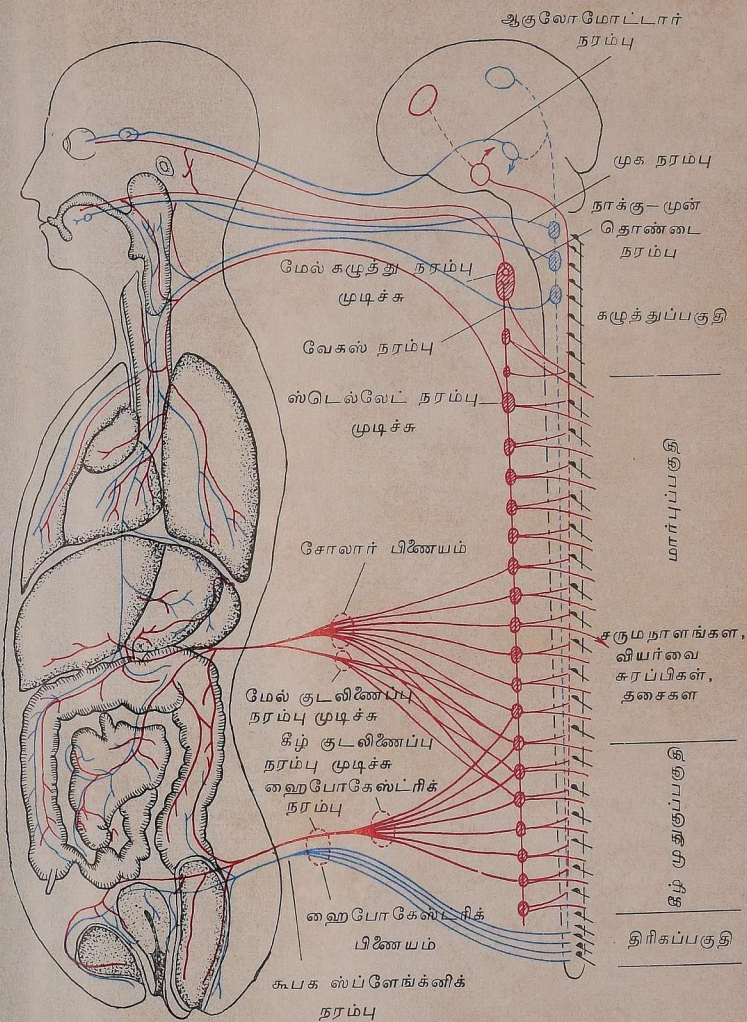 ஆகுலோமோட்டார்
நரம்பு
முக நரம்பு
நாக்கு–முன்
தொண்டை
நரம்பு
மேல் கழுத்து நரம்பு
முடிச்சு
கழுத்துப்பகுதி
வேகஸ் நரம்பு
ஸ்டெல்லேட் நரம்பு
முடிச்சு
மார்புப்பகுதி
சோலார் பிணையம்
சருமநாளங்கள,
வியர்வை
சுரப்பிகள்,
தசைகள
மேல் குடலிணைப்பு
நரம்பு முடிச்சு
கீழ் குடலிணைப்பு
நரம்பு முடிச்சு
ஹைபோகேஸ்ட்ரிக்
நரம்பு
கீழ் முதுகுப்பகுதி
ஹைபோகேஸ்ட்ரிக்
பிணையம்
திரிகப்பகுதி
கூபக ஸ்ப்ளேங்க்னிக்
நரம்பு